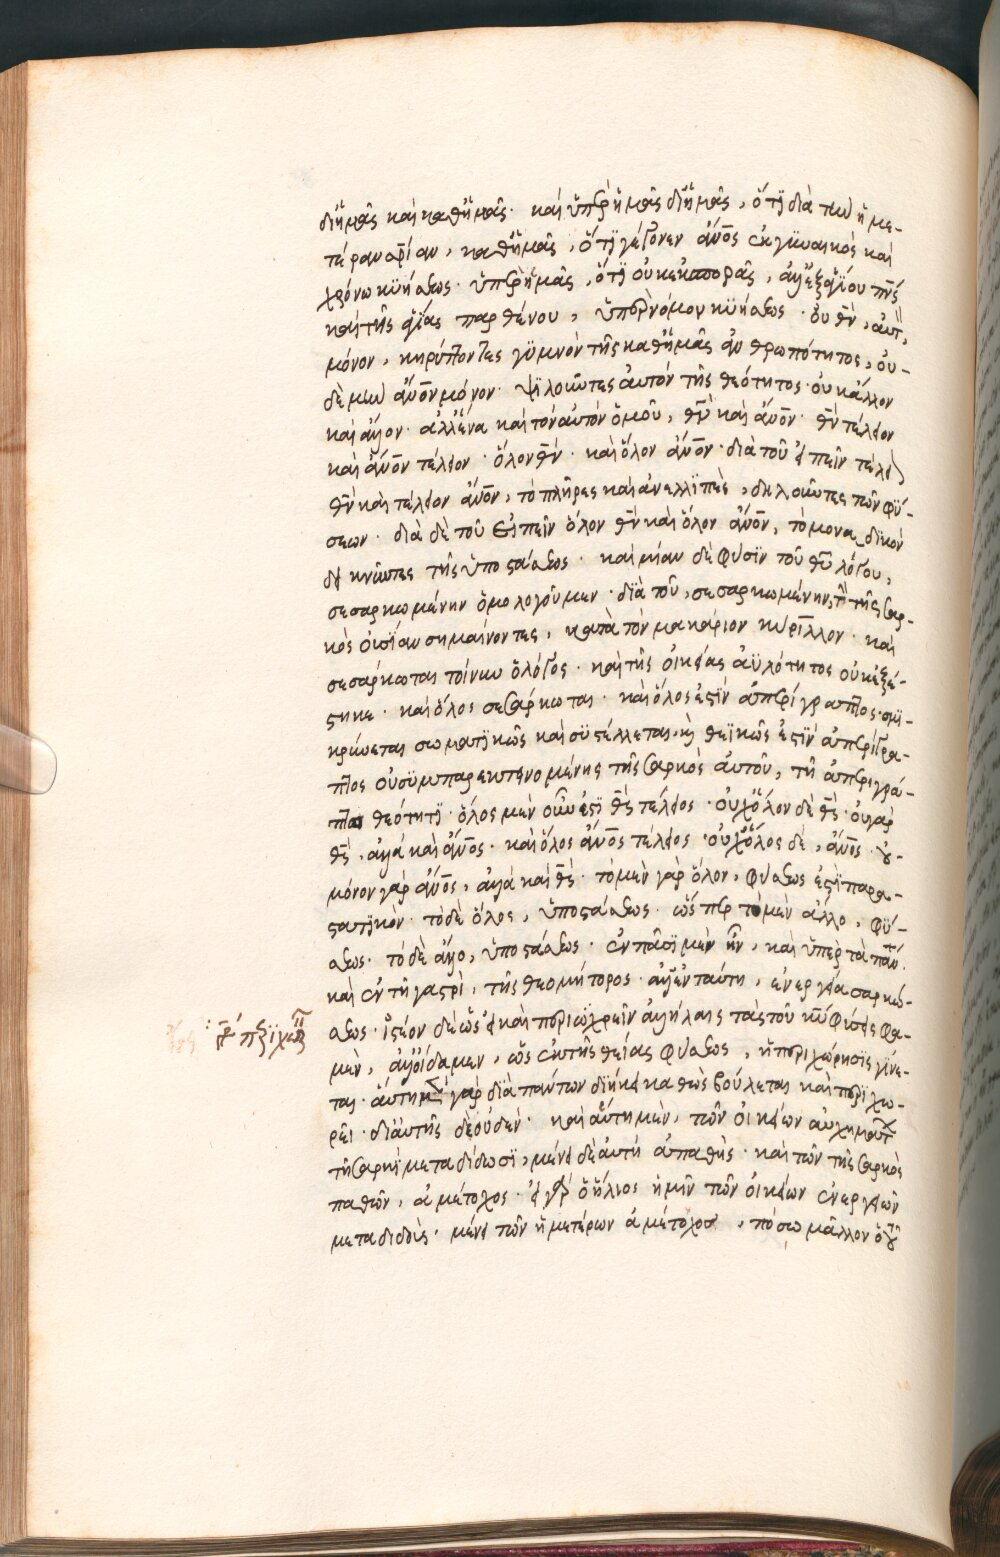 δι' ἡμᾶς καὶ καθ' ἡμᾶς· καὶ ὑπὲρ ἡμᾶς δι' ἡμᾶς, ὅτι διὰ τὴν ἡμε-
τέραν σ̅ρίαν, καθ' ἡμᾶς, ὅτι γέγονεν ἄν̅ο̅ς ἐκ γυναικὸς καὶ
χρόνω κυήσεως· ὑπὲρ ἡμᾶς, ὅτι οὐκ ἐκ σπορᾶς, ἀλλ' ἐξ ἁγίου π̅ν̅ς
καὶ τῆς ἁγίας παρθένου, ὑπὲρ νόμον κυήσεως· οὐ θ̅ν̅, αὐτ,
μόνον, κηρύττοντες γυμνὸν τῆς καθ' ἡμᾶς ἀνθρωπότητος, οὐ-
δὲ μὴν ἄν̅ο̅ν μόνον· ψιλοῦντες αὐτὸν τῆς θεότητος· οὐκ ἄλλον
καὶ ἄλλον· ἀλλ' ἕνα καὶ τὸν αὐτὸν ὁμοῦ, θ̅ν̅ καὶ ἄν̅ο̅ν· θ̅ν̅ τέλειον
καὶ ἄν̅ο̅ν τέλειον· ὅλον θ̅ν̅· καὶ ὅλον ἄν̅ο̅ν· διὰ τοῦ εἰπεῖν τέλει
θ̅ν̅ καὶ τέλειον ἄν̅ο̅ν, τὸ πλῆρες καὶ ἀνελλιπὲς, δηλοῦντες τῶν φύ-
σεων· διὰ δὲ τοῦ εἰπεῖν ὅλον θ̅ν̅ καὶ ὅλον ἄν̅ο̅ν, τὸ μοναδικὸν
δεικνῦντες τῆς ὑποστάσεως· καὶ μίαν δὲ φύσιν τοῦ θ̅υ̅ λόγου,
σεσαρκωμένην ὁμολογοῦμεν· διὰ τοῦ, σεσαρκωμένην, τὴν τῆς σαρ-
κὸς οὐσίαν σημαίνοντες, κατὰ τὸν μακάριον κύριλλον· καὶ
σεσάρκωται τοίνυν ὁ λόγος· καὶ τῆς οἰκείας ἀϋλότητος οὐκ ἐξέ-
στηκε· καὶ ὅλος σεσάρκωται· καὶ ὅλος ἐστὶν ἀπερίγραπτος· σμι-
κρύνεται σωματικῶς καὶ συστέλλεται, καὶ θεϊκῶς ἐστὶν ἀπερίγρα-
πτος οὐ συμπαρεκτεινομένης τῆς σαρκὸς αὐτοῦ, τῆ ἀπεριγρά-
πτω θεότητι· ὅλος μὲν οὖν ἐστι θ̅ς̅ τέλειος· οὐχ ὅλον δὲ θ̅ς̅· οὐ γὰρ
θ̅ς̅, ἀλλὰ καὶ ἄν̅ο̅ς· καὶ ὅλος ἄν̅ο̅ς τέλειος· οὐχ ὅλος δὲ, ἄν̅ο̅ς· οὐ-
μόνον γὰρ ἄν̅ο̅ς, ἀλλὰ καὶ θ̅ς̅· τὸ μὲν γὰρ ὅλον, φύσεως ἐστι παρα-
στατικὸν· τὸ δὲ ὅλος, ὑποστάσεως· ὥσπερ τὸ μὲν ἄλλο, φύ-
σεως· τὸ δὲ ἄλλο, ὑποστάσεως· ἐν πᾶσι μὲν ἦν, καὶ ὑπὲρ τὰ πάν·
καὶ ἐν τῆ γαστρὶ, τῆς θεομήτορος· ἀλλ' ἐν ταύτη, ἐνεργεία σαρκώ-
σεως· ἰστέον δὲ ὡς εἰ καὶ περιχωρεῖν ἀλλήλαις τὰς τοῦ κ̅υ̅ φύσεις φα-
μὲν, ἀλλ' οἴδαμεν, ὡς ἐκ τῆς θείας φύσεως, ἡ περιχώρησις γίνε-
ται· αὕτη μὲν γὰρ διὰ πάντων διήκει καθὼς βούλεται καὶ περιχω-
ρεῖ· δι' αὐτῆς δὲ οὐδὲν· καὶ αὕτη μὲν, τῶν οἰκείων αὐχημάτ
τῆ σαρκὶ μεταδίδωσι, μένει δὲ αὐτὴ ἀπαθὴς· καὶ τῶν τῆς σαρκὸς
παθῶν, ἀμέτοχος· εἰ γὰρ ὁ ἥλιος ἡμῖν τῶν οἰκείων ἐνεργειῶν
μεταδιδοὺς· μένει τῶν ἡμετέρων ἀμέτοχος, πόσω μᾶλλον ὁ τοῦ